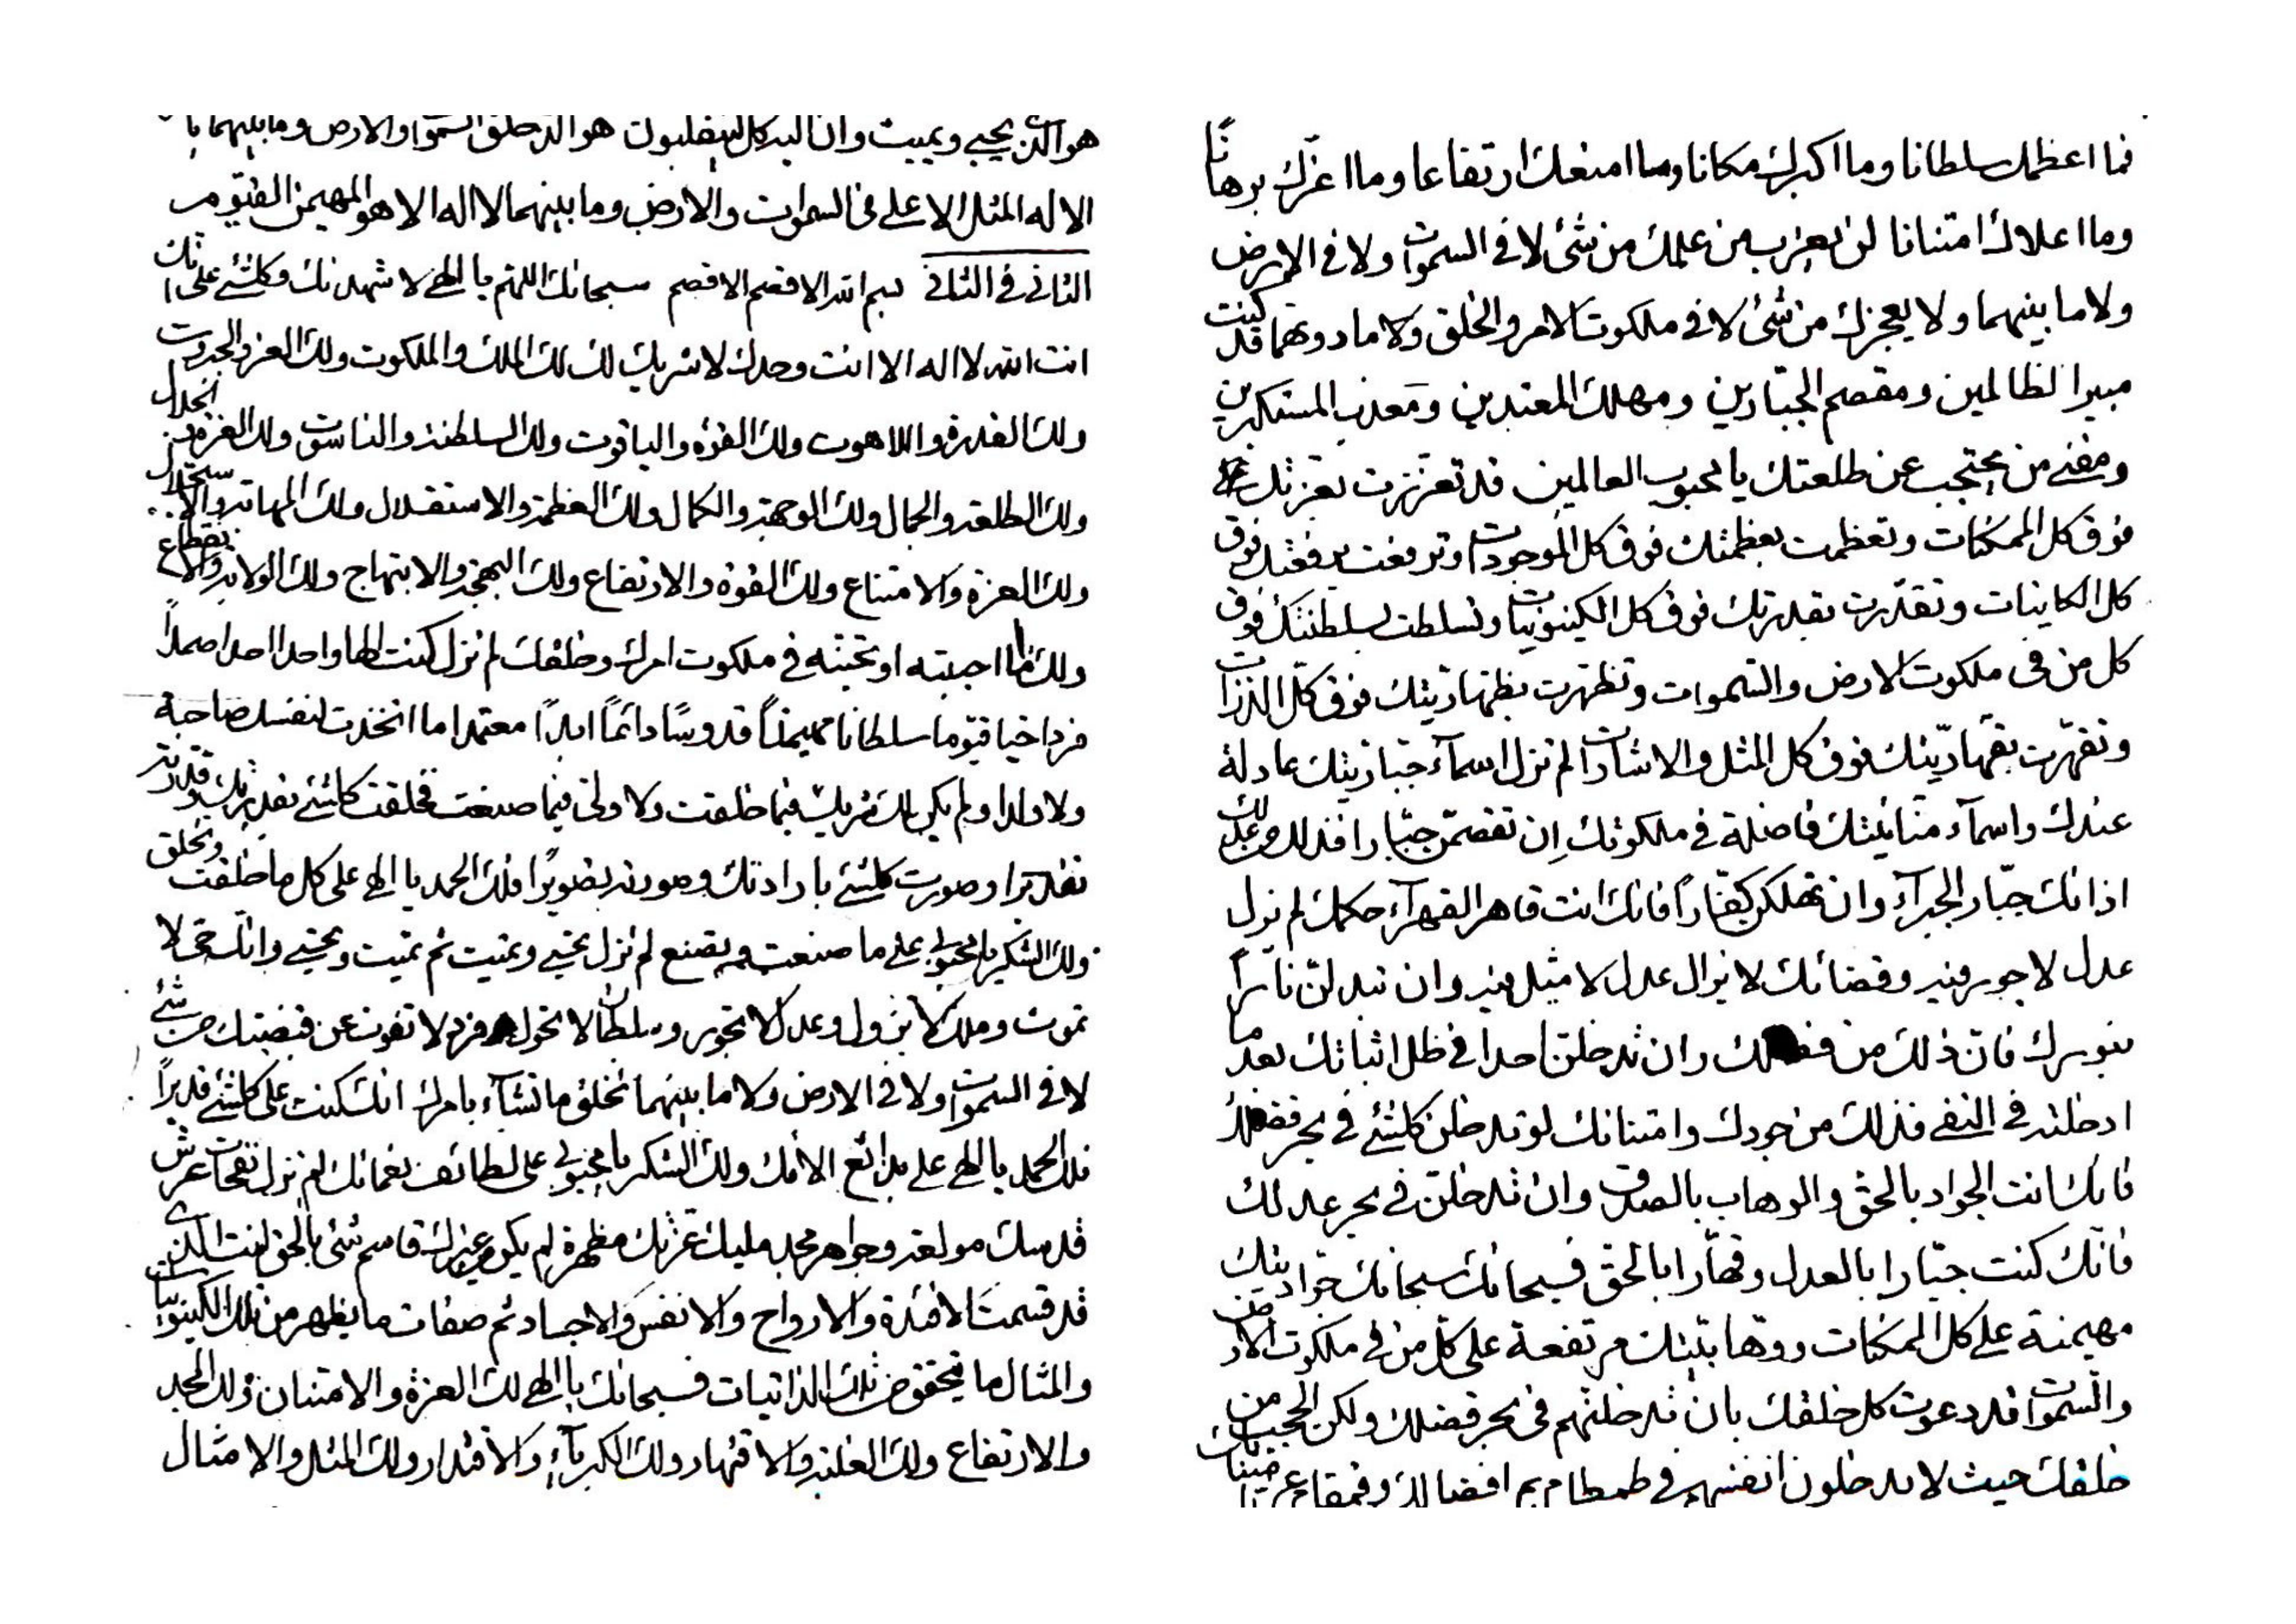 فما اعظمك سلطانا وما اكبرك مكانا وما امنعك ارتفاعا وما اعزك برهانا
وما اعلاك امتنانا لن يعزب من علمك من شئ لا في السموات ولا في الارض
ولا ما بينهما ولا يعجزك من شئ لا في ملكوت الامر والخلق ولا ما دونهما قد كنت
مبير الظالمين ومقصم الجبارين ومهلك المعتدين ومعذب المستكبرين
ومفني من يحتجب عن طلعتك يا محبوب العالمين قد تعززت بعزتك
فوق كل الممكنات وتعظمت بعظمتك فوق كل الموجودات وترفعت برفعتك فوق
كل الكاينات وتقدرت بقدرتك فوق كل الكينونيات وتسلطت بسلطنتك فوق
كل من في ملكوت الارض والسموات وتظهرت بظهاريتك فوق كل الذرات
وتقهرت بقهاريتك فوق كل المثل والاشارات لم تزل اسمآء جباريتك عادلة
عندك واسمآء منانيتك فاضلة في ملكوتك ان تقصمن جبارا فذلك من عدلك
اذ انك جبار الجبرآء وان تهلكن كفارا فانك انت قاهر القهرآء حكمك لم يزل
عدل لا جور فيه وقضائك لا يزال عدل لا مثيل فيه وان تبدلن نارا
بنورك فان ذلك من فضلك وان تدخلن احدا في ظل اثباتك بعد ما
ادخلته في النفي فذلك من جودك وامتنانك لو تدخلن كلشئ في بحر فضلك
فانك انت الجواد بالحق والوهاب بالصدق وان تدخلن في بحر عدلك
فانك كنت جبارا بالعدل وقهارا بالحق فسبحانك سبحانك جواديتك
مهيمنة على كل الممكنات ووهابيتك مرتفعة على كل من في ملكوت الارض
والسموات قد دعوت كل خلقك بان تدخلنهم في بحر فضلك ولكن الحجب من
خلقك حيث لا يدخلون انفسهم في طمطام يم افضالك وقمقام عز
هو الذي يحيي ويميت وان اليه كل لينقلبون هو الذي خلق السموات والارض وما بينهما
الا له المثل الاعلى في السموات والارض وما بينهما لا اله الا هو المهيمن القيوم
الثاني في الثاني بسم الله الاقصم الاقصم سبحانك اللهم يا الهي لاشهدنك وكلشئ على انك
انت الله لا اله الا انت وحدك لا شريك لك لك الملك والملكوت ولك العز والجبروت
ولك القدرة واللاهوت ولك القوة والياقوت ولك السلطنة والناسوت ولك العزة والجلال
ولك الطلعة والجمال ولك الوجهة والكمال ولك العظمة والاستقلال ولك المهابة والاستجلال
ولك العزة والامتناع ولك القوة والارتفاع ولك البهجة والابتهاج ولك الولاية والانقطاع
ولك ما احببته او تحبنه في ملكوت امرك وخلقك لم تزل كنت الها واحدا احدا صمدا
فردا حيا قيوما سلطانا مهيمنا قدوسا دائما ابدا معتمدا ما اتخذت لنفسك صاحبة
ولا ولدا ولم يكن لك شريك فيما خلقت ولا ولي فيما صنعت فخلقت كلشئ بقدرتك وقدرته
تقديرا وصورت كلشئ بارادتك وصورته تصويرا فلك الحمد يا الهي على كل ما خلقت وتخلق
ولك الشكر يا محبوبي على ما صنعت وتصنع لم تزل تحيي وتميت ثم تميت وتحيي وانك حي لا
تموت وملك لا يزول وعدل لا تجور وسلطان لا تحول وفرد لا تفوت عن قبضتك من شئ
لا في السموات ولا في الارض ولا ما بينهما تخلق ما تشآء بامرك انك كنت على كلشئ قديرا
فلك الحمد يا الهي على بدائع الائك ولك الشكر يا محبوبي على لطائف نعمائك لم تزل نفحات عرش
قدسك مولعة وجواهر مجد مليك عزتك مظهرة لم يكن غيرك قاسم شئ بالحق انت الذي
قد قسمت الافئدة والارواح والانفس والاجساد ثم صفات ما يظهر من تلك الكينونيات
والمثال ما يتحقق من تلك الذاتيات فسبحانك يا الهي لك العزة والامتنان ولك المجد
والارتفاع ولك الغلبة والاقتهار ولك الكبريآء والاقتدار ولك المثل والامثال